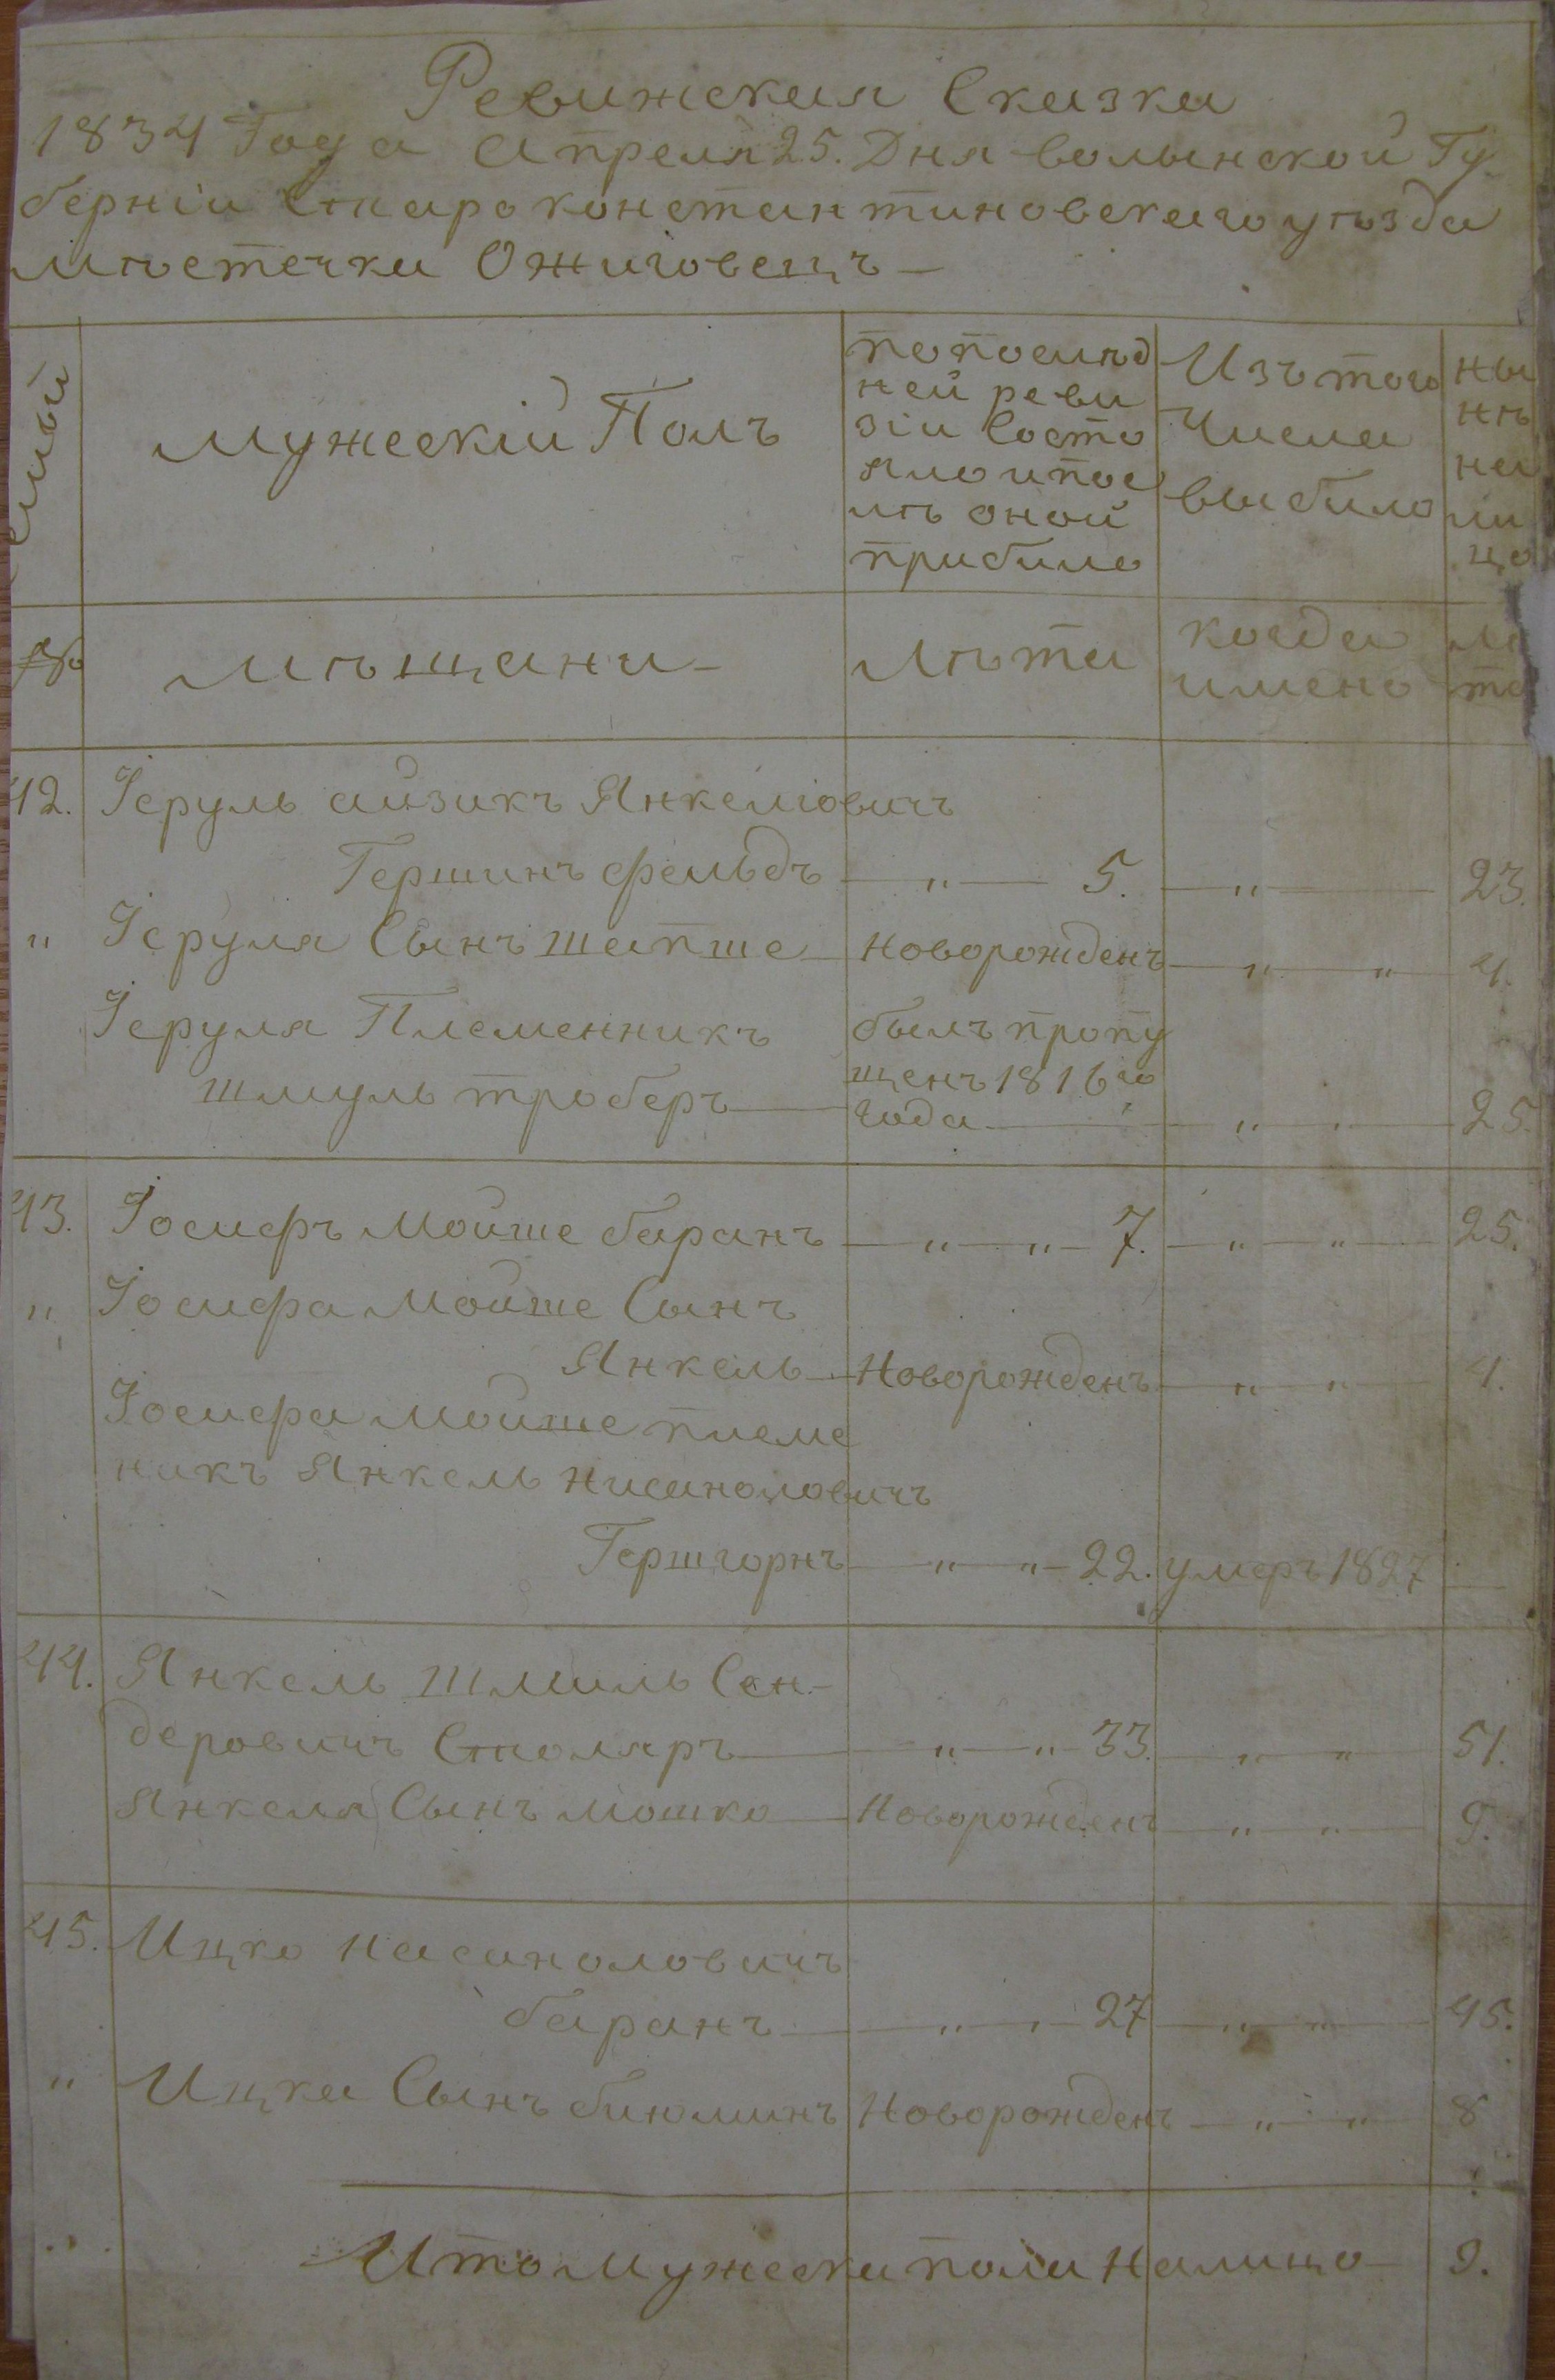 Ревижская Сказка
1834 Года Апреля 25. Дня волынской Гу
берніи Староконстантиновскаго уѣзда
мѣстечка Ожиговецъ —
мужескій Полъ
попослѣд
ней реви
зіи Состо
яло и пос
лѣ оной
прибило
Изъ того
Числа
выбило
ны
нѣ
на
ли
цо
№
мѣщани —
Лѣта
когда
имено
лѣ
та
42. Іеруль айзикъ Янкеліовичъ
Гершинъ фельдъ — " — 5. — " — 23.
" Іеруля Сынъ шапше Новорожденъ — " " — 4.
Іеруля Племенникъ былъ пропу
щенъ 1816го
шмуль троберъ — года — " " — 25.
43. Іосифъ Мойше баранъ — " — " — 7. — " — " — 25.
" Іосифа Мойше Сынъ
Янкель Новорожденъ — " " — 4.
Іосифа Мойше племе
никъ Янкель Нисаноловичъ
Гершгорнъ — " — " — 22. умеръ 1827 —
44. Янкель Шмиль Сен-
деровичъ Столяръ — " — " 33. — " " — 51.
Янкеля Сынъ мошко — Новорожденъ — " " — 9.
45. Ицко Насаноловичъ
баранъ — " " 27 — " " — 45.
" Ицка Сынъ биюминъ Новорожденъ — " " — 8
Итого Мужеска пола Налицо — 9.